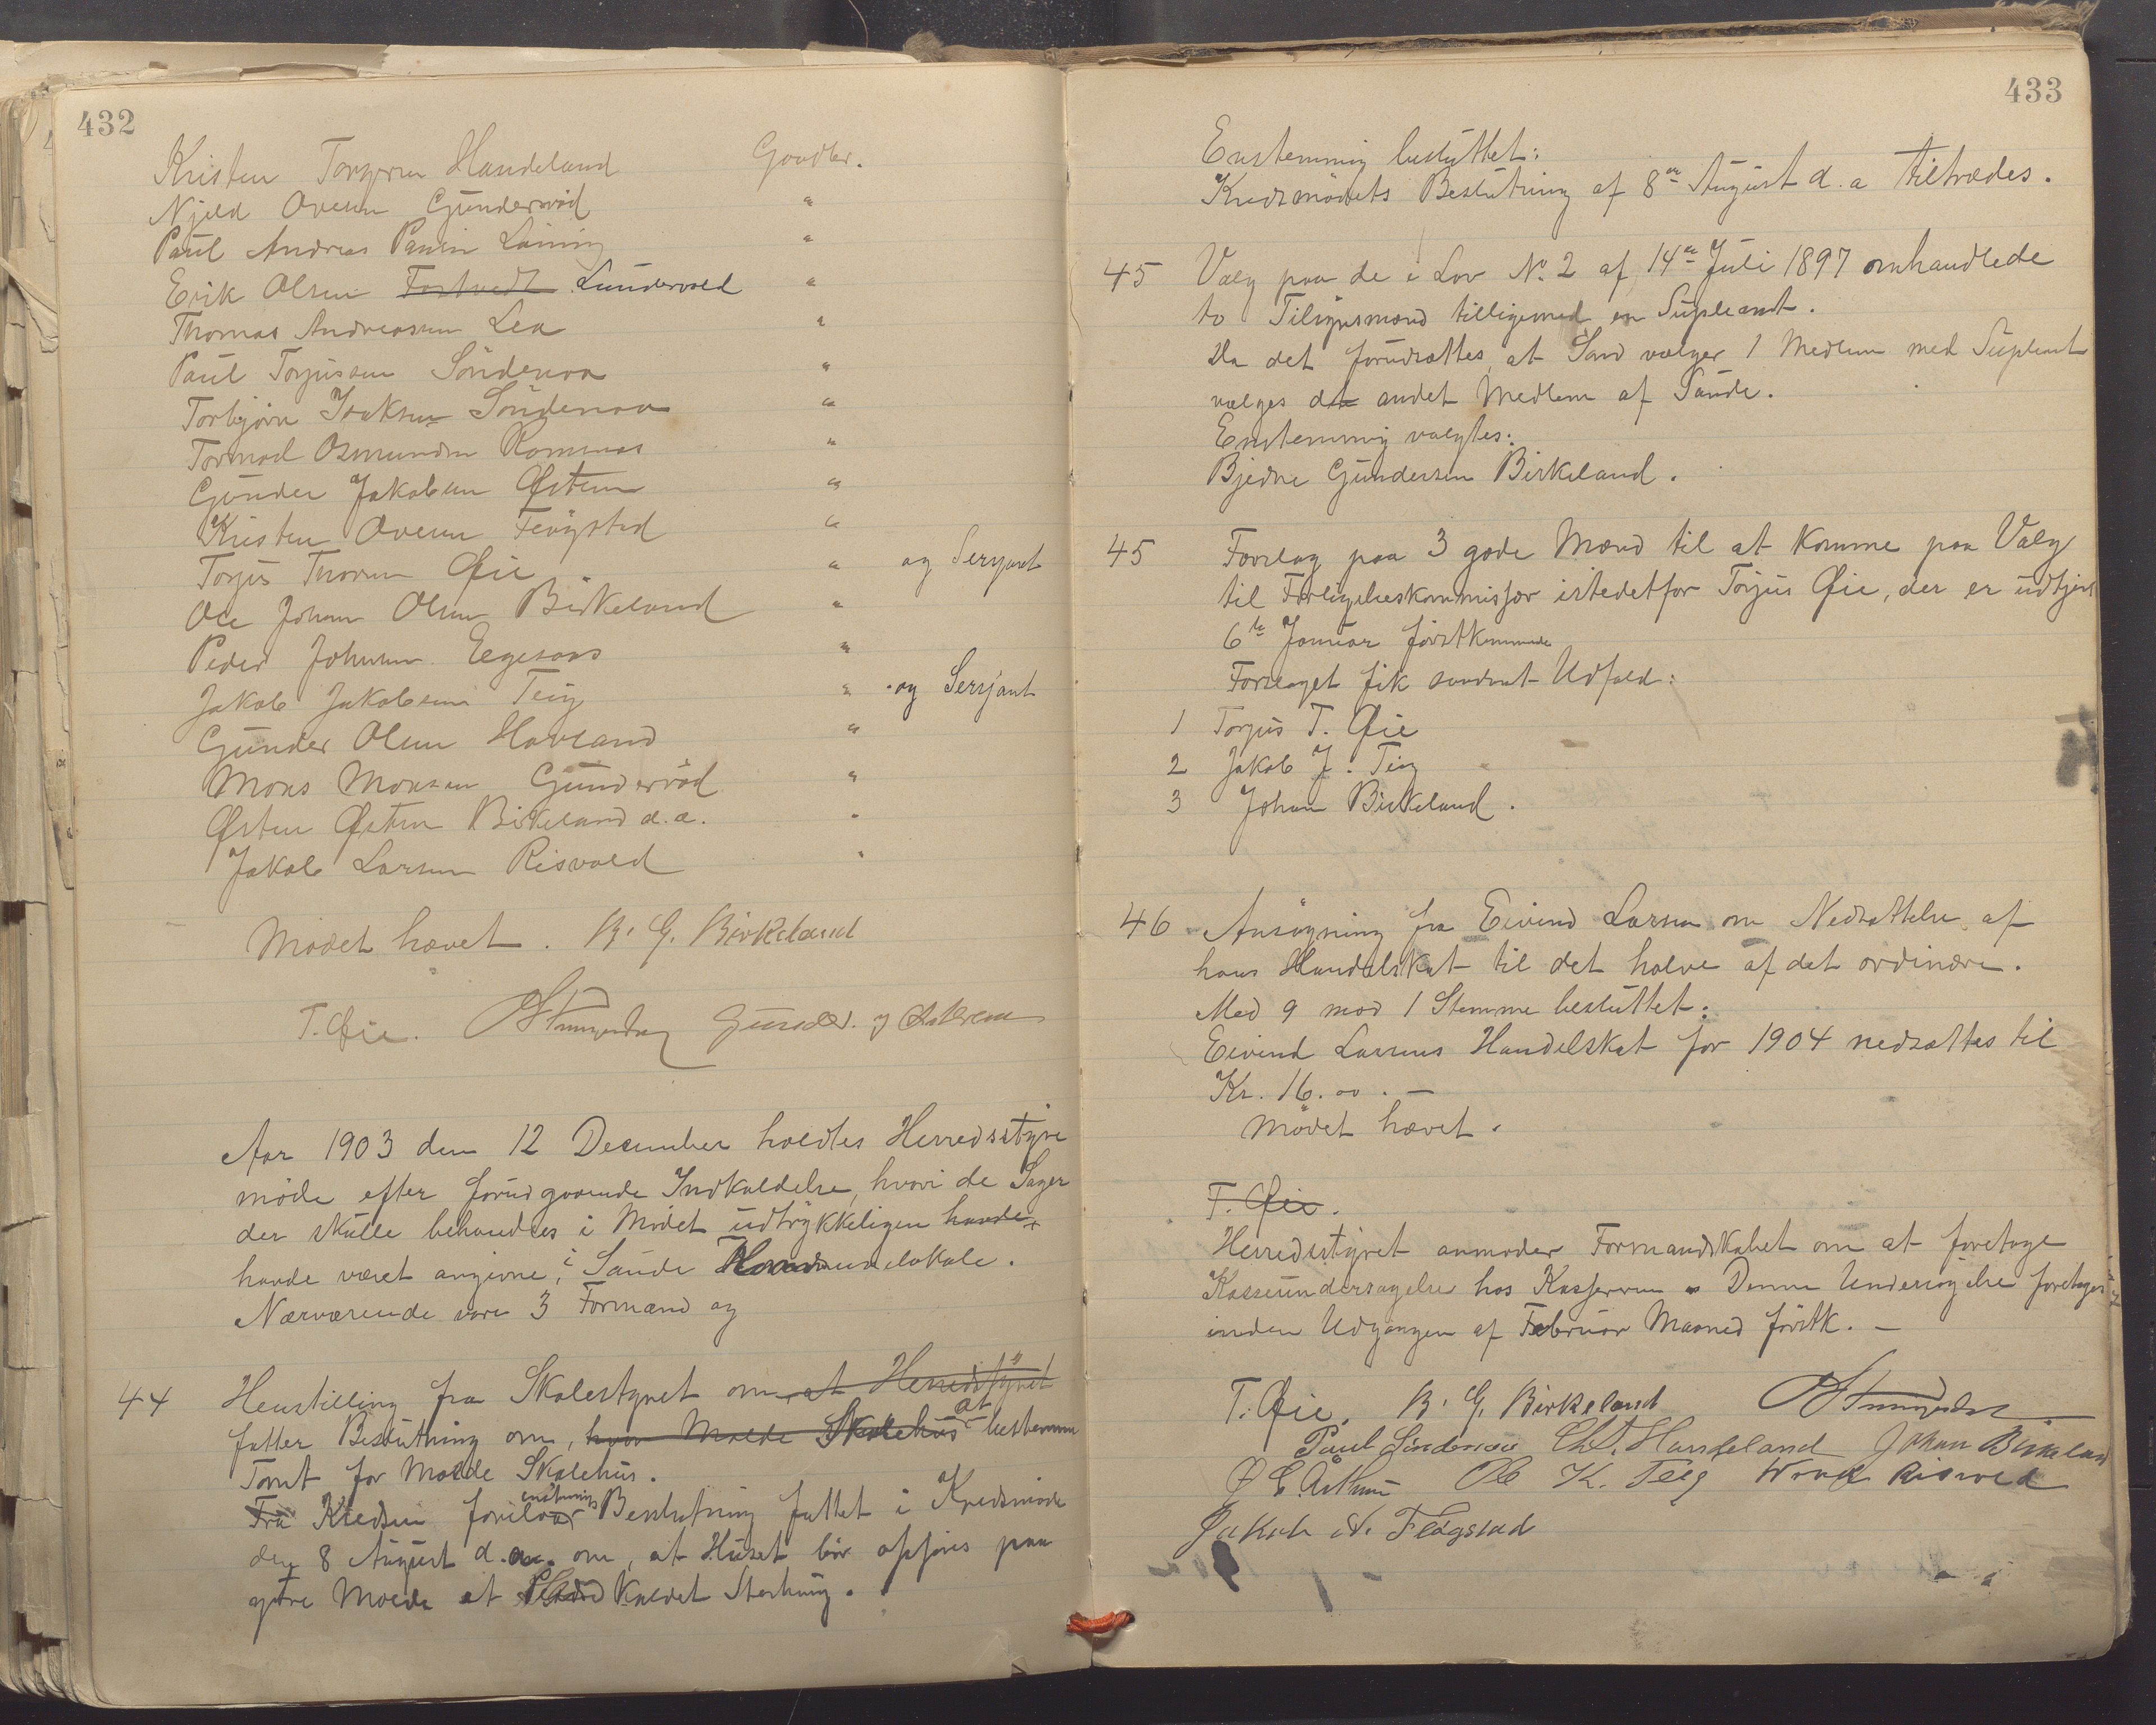 432
Kristen Handeland Gaadbr.
Njeld Ovesen Gündersröd "
Paul Andreas Launing "
Erik Olsen Fostvedt Lundervold "
Thomas Andreassen Lea "
Paul Torjussen Söndenaa "
Torbjörn Isaksen Söndenaa "
Tormod Osmundsen "
Günder Jakobsen Østrem "
Kristen Ovesen "
Torjus Thorsen Øie " og Serjant
Ole Johan Olsen Birkeland "
Peder Johnsen Egesaas "
Jakob Jakobsen Teig " og Serjant
Günder Olsen Hovland "
Mons Monsen Gündersröd "
Østen Østensen Birkeland d.a. "
Jakob Larsen Risvold "
Mödet hævet. B. G. Birkeland
T. Øie. Gunder. J Østerem
Aar 1903 den 12 December holdtes Herredsstyre
möde efter forudgaaende Indkaldelse, hvori de Sager
der skulle behandles i Mödet udtrykkeligen havde
havde været angivne, i Sande Herredslokale.
Nærværende vare 3 Formænd og
44 Henstilling fra Skolestyret om at Herredstyret
fatter Beslutning om, hvor Molde Skolehus at bestemme
Tomt for Molde Skolehus.
Fra Kredsen foreligger enstemmig Beslutning fattet i Kredsmöde
den 8 August d.a. om, at Huset bör opföres paa
ytre Molde et Plads kaldet
433
Enstemmig besluttet:
Kredsmödets Beslutning af 8de August d.a tiltrædes.
45 Valg paa de i Lov No. 2 af 14de Juli 1897 omhandlede
to Tilsynsmænd tilligemed en Supleant.
Da det forudsættes, at Sand vælger 1 Medlem med Supleant
vælges det andet Medlem af Sande.
Enstemmig valgtes:
Bjedne Gundersen Birkeland.
45 Forslag paa 3 gode Mænd til at komme paa Valg
til Forligelseskommissær istedetfor Torjus Øie, der er udtjent
6te Januar förstkommende
Forslaget fik saadant Udfald:
1 Torjus T. Øie
2 Jakob J. Teig
3 Johan Birkeland.
46 Ansögning fra Eivind Larsen om Nedsættelse af
hans Handelskat til det halve af det ordinære.
Med 9 mod 1 Stemme besluttet:
Eivind Larsens Handelskat for 1904 nedsættes til
Kr. 16.00.—
Mödet hævet.
T. Øie.
Herredsstyret anmoder Formandskabet om at foretage
Kasseundersögelse hos Kassereren. Denne Undersögelse foretages
inden Udgangen af Februar Maaned förstk. —
T. Øie. B. G. Birkeland
Paul Söndenaa Chr. T. Handeland Johan Birkeland
Ø E Østrem Ole K. Teig Risvold
Jakob N. Flögstad